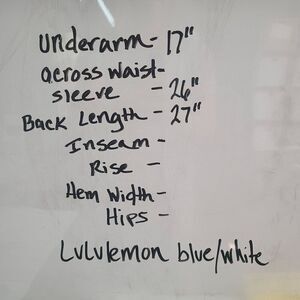 underarm - 17"
across waist -
sleeve - 26"
Back Length - 27"
Inseam -
Rise -
Hem Width -
Hips -
Lululemon blue/white